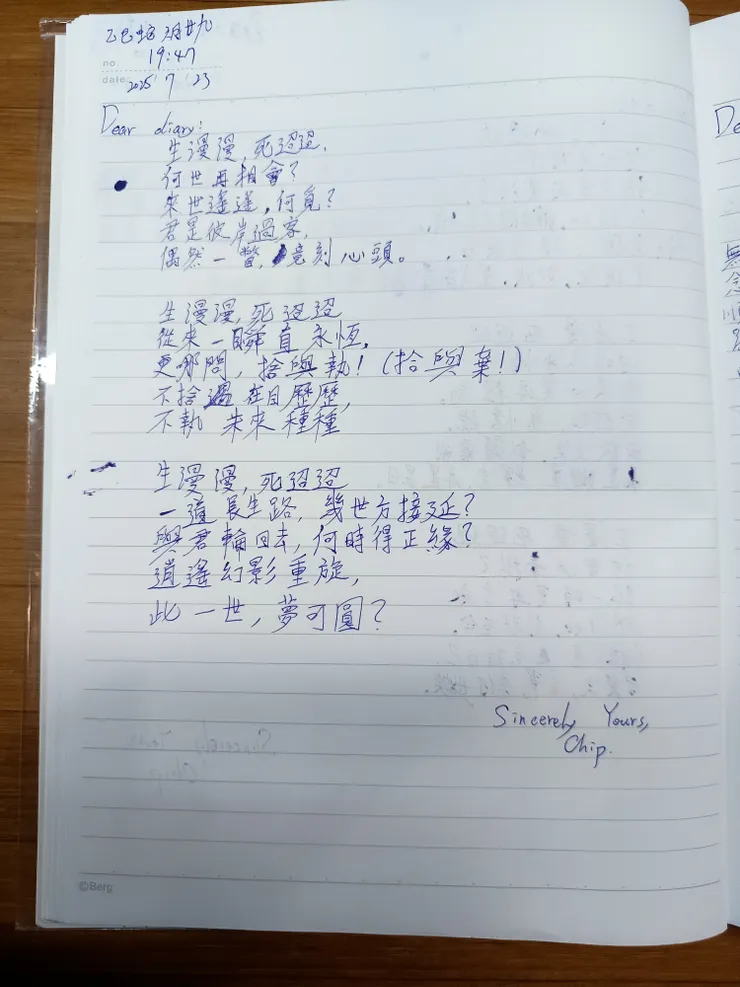 乙巳 月廿九
no. 19:47
date. 2025 7 23
Dear diary:
生漫漫,死迢迢,
何世再相會?
來世遙遙,何覓?
君是彼岸過客,
偶然一瞥,竟刻心頭。
生漫漫,死迢迢
從來一瞬直永恆,
更哪問,捨與執!(捨與棄!)
不捨 在目歷歷,
不執 未來種種
生漫漫,死迢迢
一道長生路,幾世方接延?
與君輪回去,何時得正緣?
逍遙幻影重旋,
此一世,夢可圓?
Sincerely Yours,
Chip.
©Berg
De